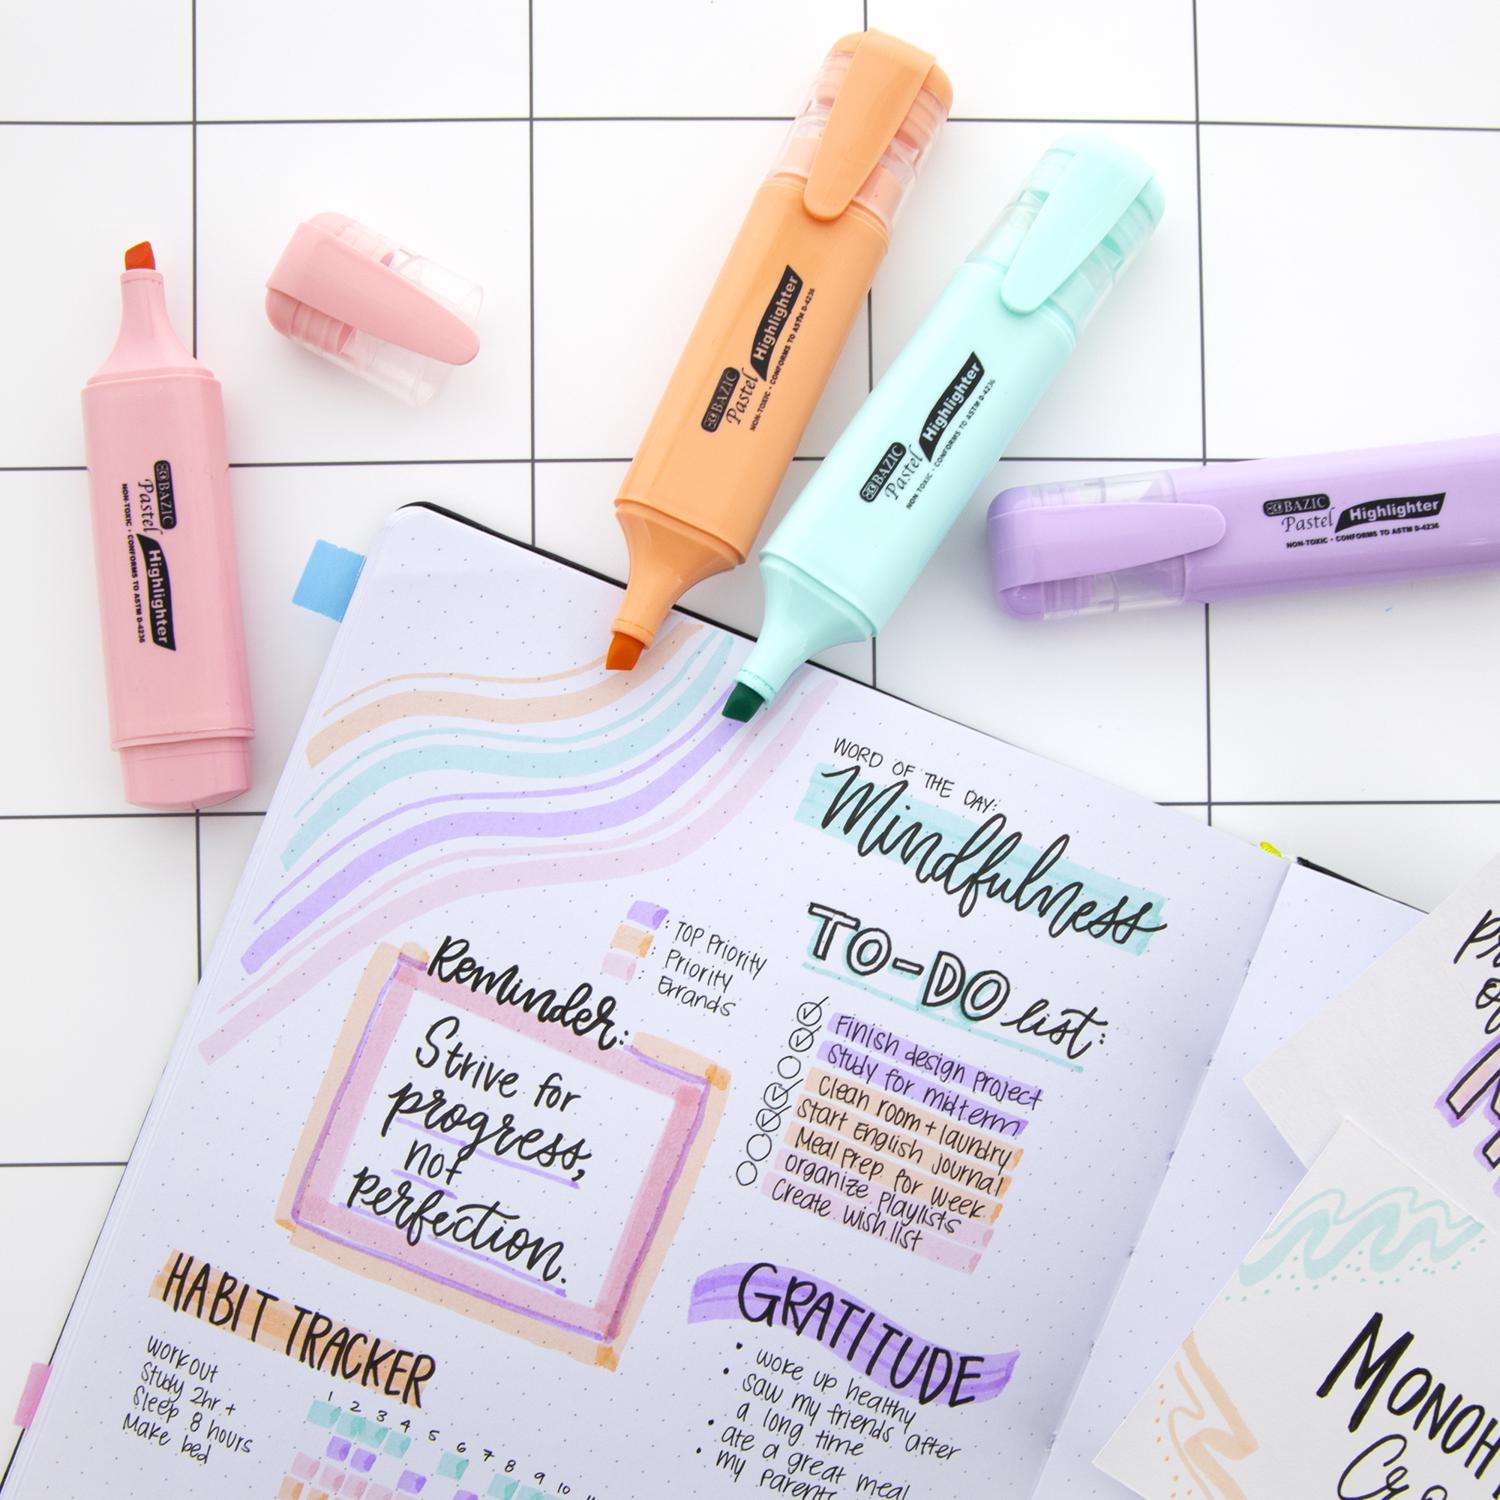 BAZIC
Pastel Highlighter
NON-TOXIC • CONFORMS TO ASTM D-4236
BAZIC
Pastel Highlighter
NON-TOXIC • CONFORMS TO ASTM D-4236
BAZIC
Pastel Highlighter
NON-TOXIC • CONFORMS TO ASTM D-4236
BAZIC
Pastel Highlighter
NON-TOXIC • CONFORMS TO ASTM D-4236
WORD OF THE DAY:
Mindfulness
: TOP Priority
: Priority
Errands
TO-DO list:
Finish design project
Study for midterm
Clean room + laundry
Start English journal
Meal Prep for week
organize playlists
Create wish list
Reminder:
Strive for
progress,
not
perfection.
HABIT TRACKER
workout
Study 2hr +
Sleep 8 hours
Make bed
1 2 3 4 5 6 7 8 9 10
GRATITUDE
• woke up healthy
• saw my friends after
a long time
• ate a great meal
• my parents
MONOH